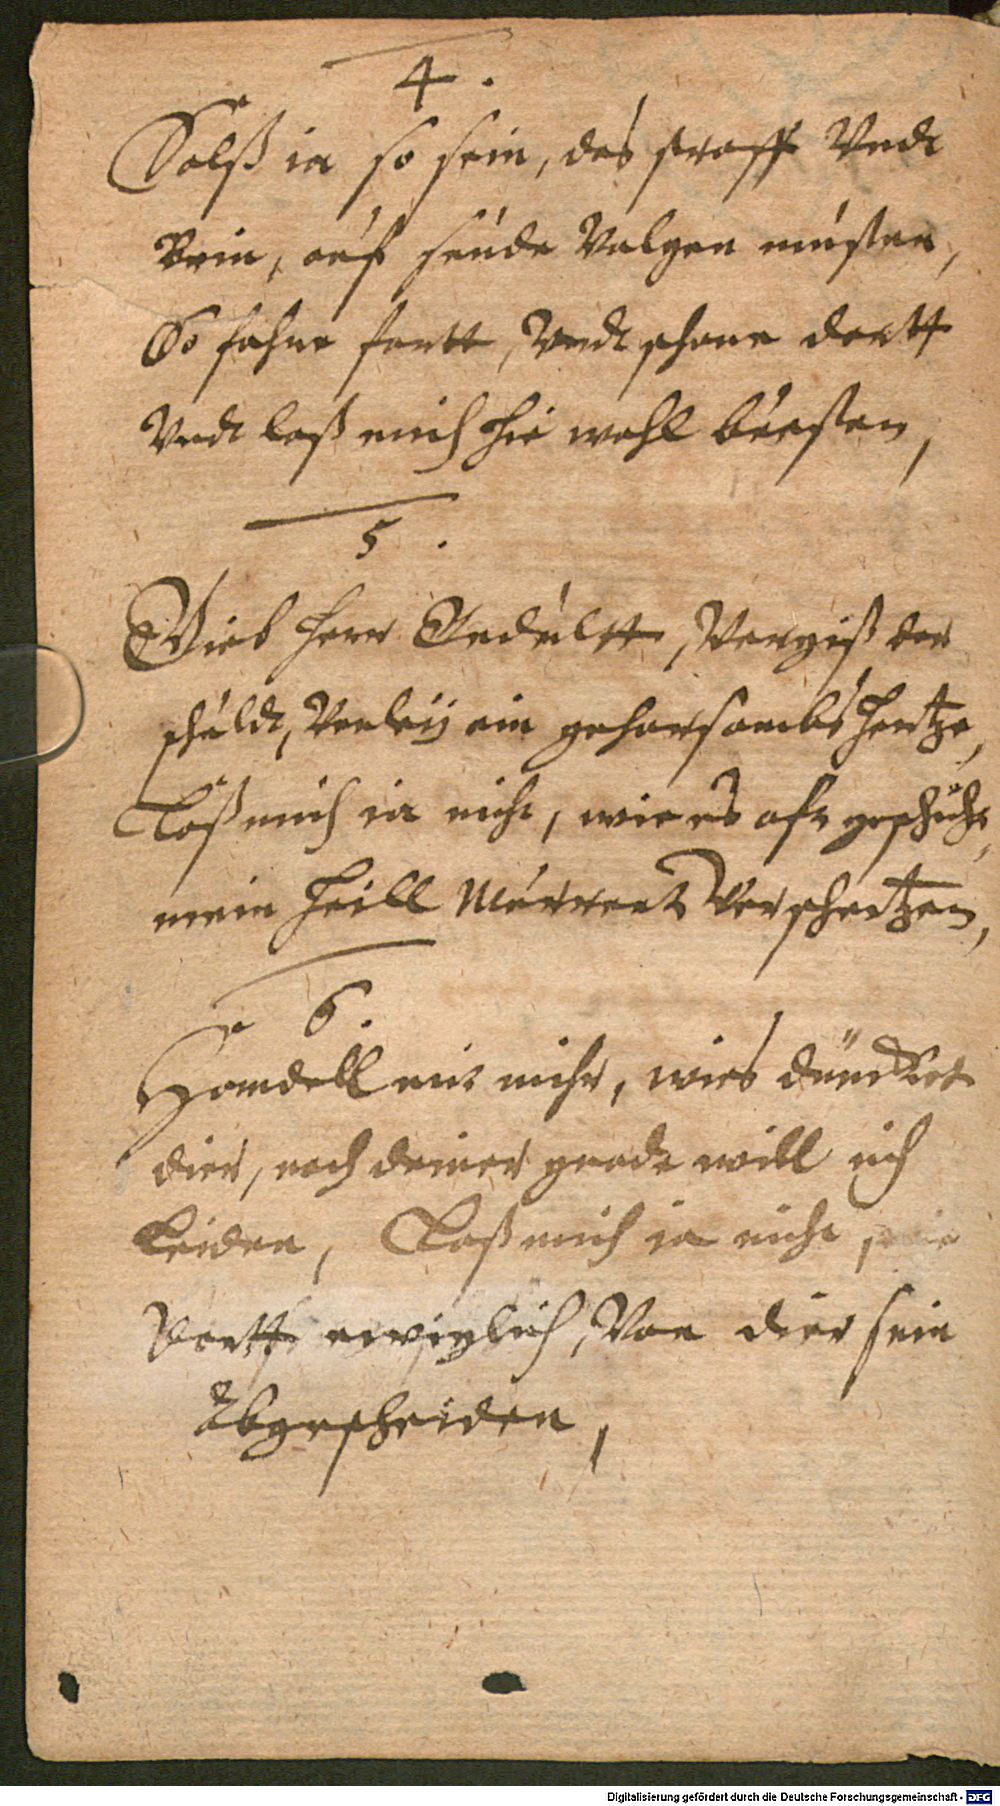 4.
Solß ia so sein, das straff Vndt
Pein, auf sünde Volgen müßen,
So fahre fortt, Vndt schone dortt
Vndt laß mich hie wohl büeßen,
5.
Gieb herr Gedultt, Vergiß der
schuldt, Verleij ein gehorsambs hertze,
Laß mich ia nicht, wie es oft geschicht,
mein heill Murrent Verschertzen,
6.
Handell mit mihr, wies düncket
dier, nach deiner gnade will ich
Leiden, Laß mich ia nicht
Dortt ewiglich, Von dier sein
Abgescheiden,
Digitalisierung gefördert durch die Deutsche Forschungsgemeinschaft - DFG